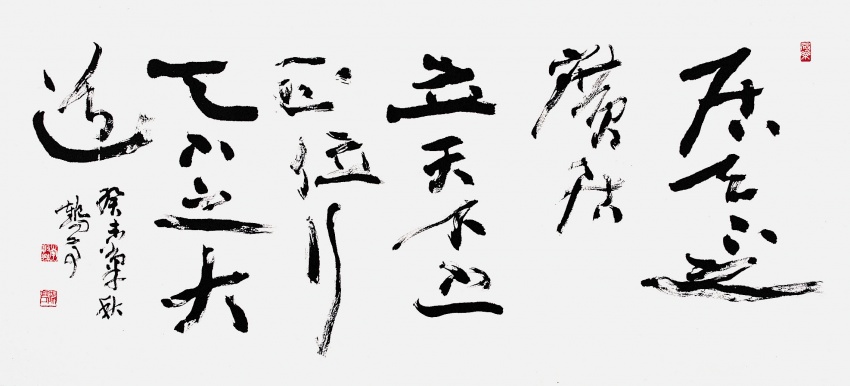 居天下之
廣居
立天下之
正位行
天下之大
道
癸未年秋